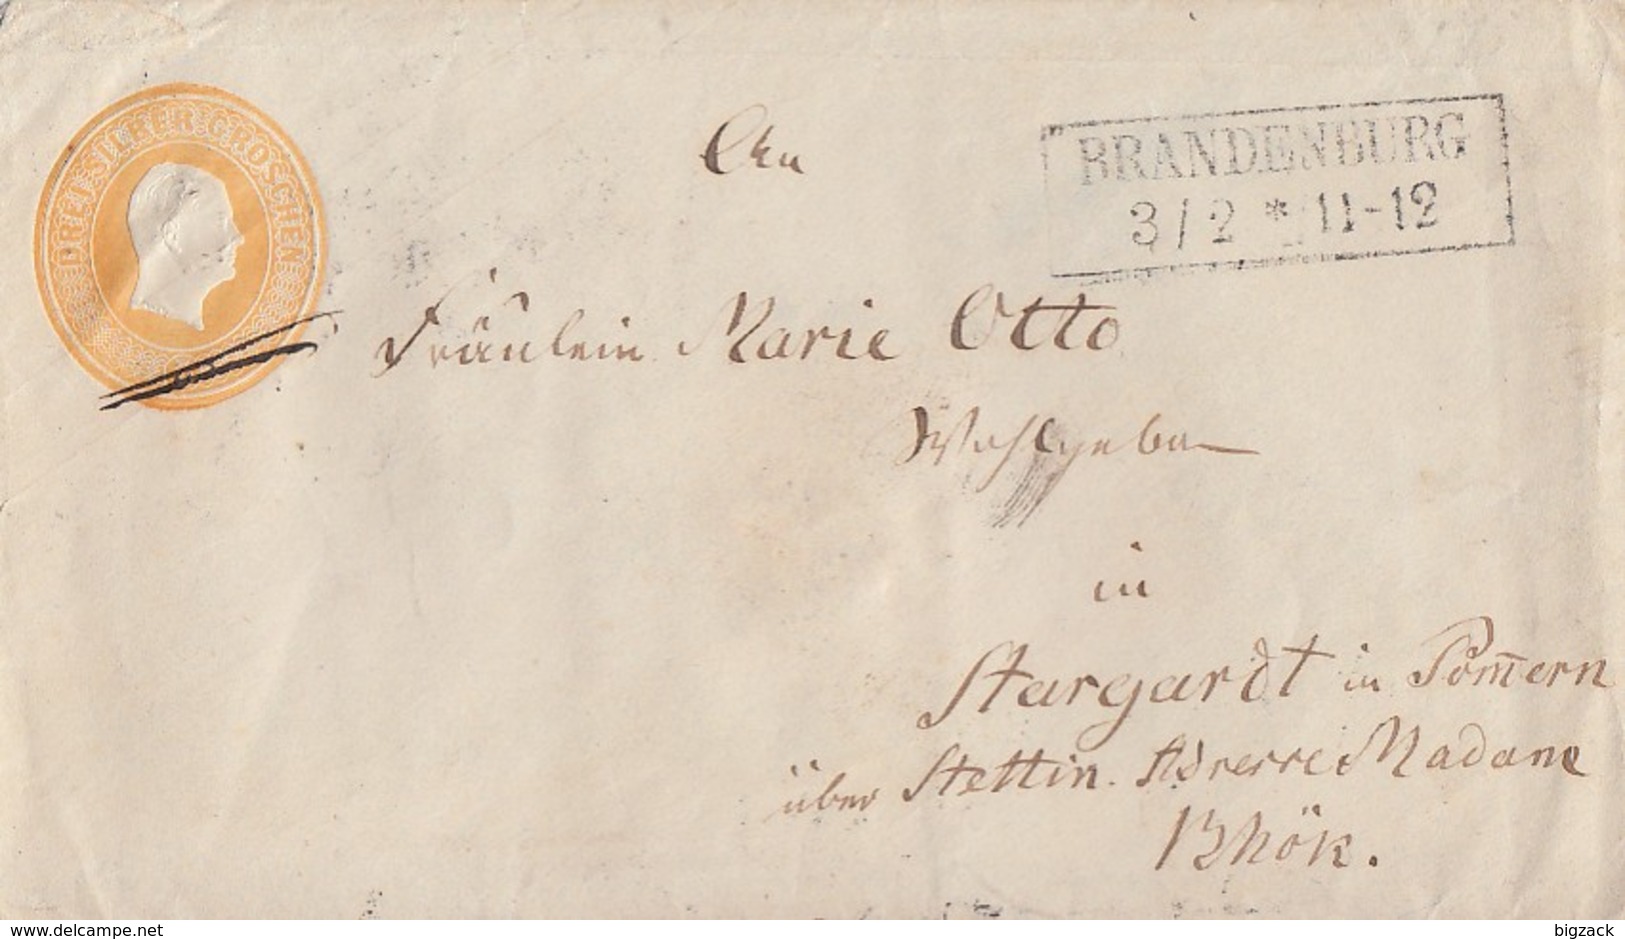 DREI SILBER GROSCHEN
BRANDENBURG
3 / 2 * 11-12
An
Fräulein Marie Otto
Wohlgeboren
in
Stargardt in Pom̅ern
über Stettin. Adresse Madame
delcampe.net
bigzack